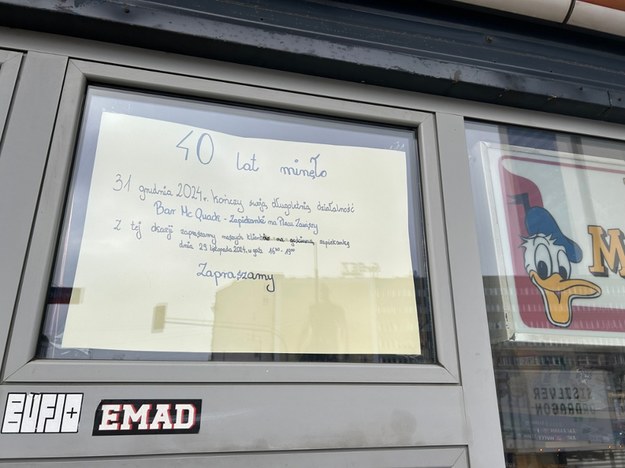 40 lat minęło
31 grudnia 2024r. kończy swoją długoletnią działalność
Bar Mc Quack - Zapiekanki na Placu Zawiszy
Z tej okazji zapraszamy naszych klientów na
dnia 29 listopada 2024 w godz.
Zapraszamy
M
EMAD